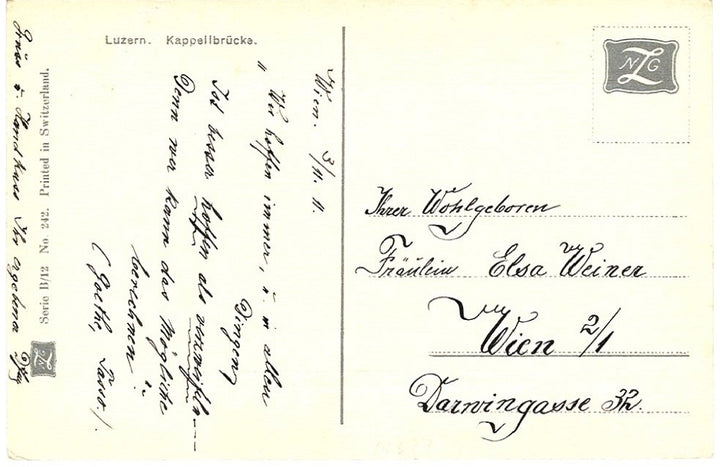 Luzern. Kappellbrücke.
Wien. 3/11. 11.
„ Wir hoffen immer, u. in allen
Dingen,
Ist besser hoffen als verzweifeln --
Denn wer kann das Mögliche
berechnen "
(Goethe, Tasso.)
Gruss & Handkuss Ihr ergebener
Serie B/12 No. 242. Printed in Switzerland.
NZG
Ihrer Wohlgeboren
Fräulein Elsa Weiner
Wien 2/1
Darwingasse 32.